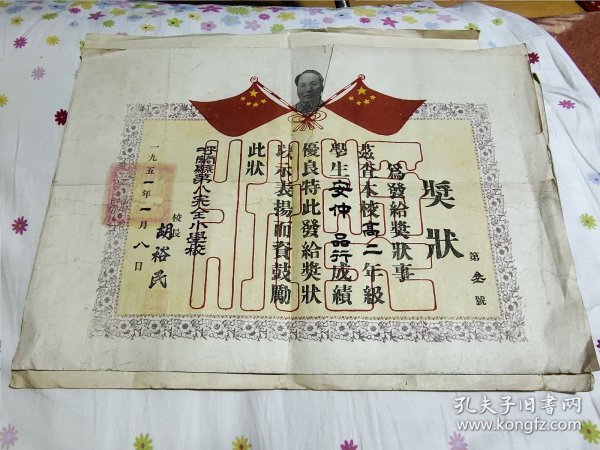 獎狀
第叁號
為發給獎狀事
茲查本校高二年級
學生安仲品行成績
優良特此發給獎狀
以示表揚而資鼓勵
此狀
人民完全小學校
校長胡裕民
一九五一年一月八日
孔夫子旧书网
www.kongfz.com